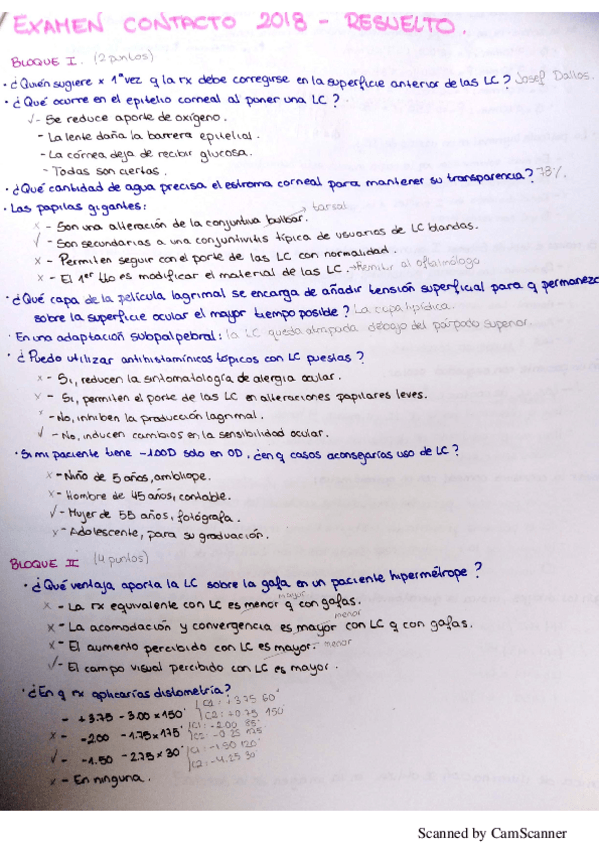 EXAMEN CONTACTO 2018 - RESUELTO.
BLOQUE I. (2 puntos)
· ¿Quién sugiere x 1ª vez q la rx debe corregirse en la superficie anterior de las LC? Josef Dallos.
· ¿Qué ocurre en el epitelio corneal al poner una LC?
√ - Se reduce aporte de oxígeno.
- La lente daña la barrera epitelial.
- La córnea deja de recibir glucosa.
- Todas son ciertas.
· ¿Qué cantidad de agua precisa el estroma corneal para mantener su transparencia? 78%.
· Las papilas gigantes:
x - Son una alteración de la conjuntiva bulbar. → tarsal
√ - Son secundarias a una conjuntivitis típica de usuarios de LC blandas.
x - Permiten seguir con el porte de las LC con normalidad.
x - El 1er tto es modificar el material de las LC. → Remitir al oftalmólogo
· ¿Qué capa de la película lagrimal se encarga de añadir tensión superficial para q permanezca
sobre la superficie ocular el mayor tiempo posible? La capa lipídica.
· En una adaptación subpalpebral: la LC queda atrapada debajo del párpado superior.
· ¿Puedo utilizar antihistamínicos tópicos con LC puestas?
x - Sí, reducen la sintomatología de alergia ocular.
x - Sí, permiten el porte de las LC en alteraciones papilares leves.
x - No, inhiben la producción lagrimal.
√ - No, inducen cambios en la sensibilidad ocular.
· Si mi paciente tiene -1.00D solo en OD, ¿en q casos aconsejarías uso de LC?
x - Niño de 5 años, ambliope.
x - Hombre de 45 años, contable.
√ - Mujer de 55 años, fotógrafa.
x - Adolescente, para su graduación.
BLOQUE II (4 puntos)
· ¿Qué ventaja aporta la LC sobre la gafa en un paciente hipermétrope?
mayor
x - La rx equivalente con LC es menor q con gafas.
menor
x - La acomodación y convergencia es mayor con LC q con gafas.
x - El aumento percibido con LC es mayor. menor
√ - El campo visual percibido con LC es mayor.
· ¿En q rx aplicarías distometría?
- +3.75 -3.00 x 150° C1: +3.75 60°
C2: +0.75 150°
x - -2.00 -1.75 x 175° C1: -2.00
C2:
√ - -1.50 -2.75 x 30° C1: -1.50 120°
C2: -4.25 30°
x - En ninguna.
Scanned by CamScanner